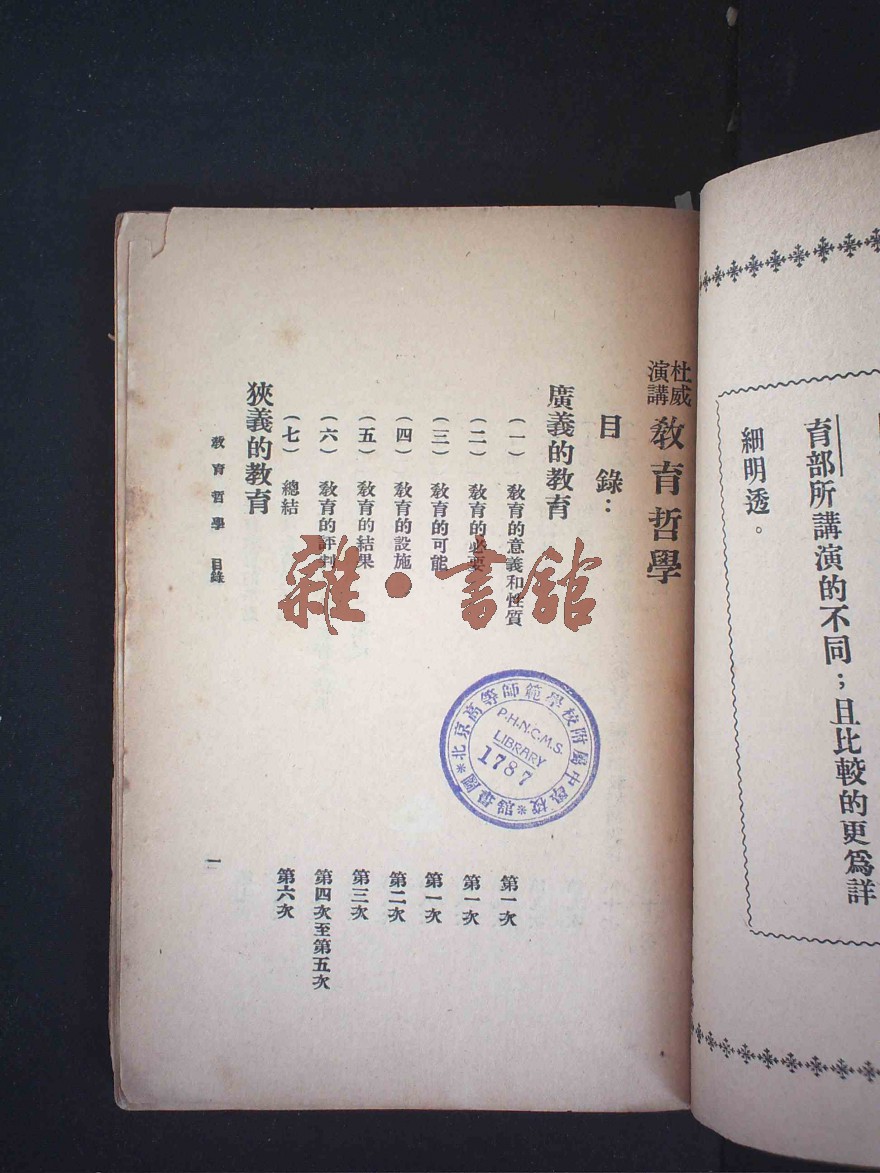 育部所講演的不同；且比較的更爲詳
細明透。
杜威演講 敎育哲學
目錄：
廣義的敎育
（一） 敎育的意義和性質 第一次
（二） 敎育的必要 第一次
（三） 敎育的可能 第一次
（四） 敎育的設施 第二次
（五） 敎育的結果 第三次
（六） 敎育的評判 第四次至第五次
（七） 總結 第六次
狹義的敎育
敎育哲學 目錄
一
雜·書館
北京高等師範學校附屬中學校
圖書館
P.H.N.C.M.S.
LIBRARY
1787